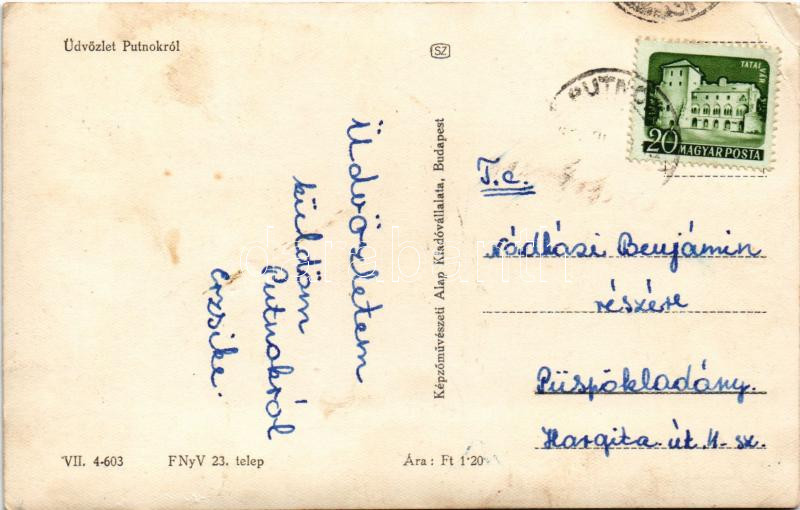 Üdvözlet Putnokról
SZ
TATAI VÁR
20 MAGYAR POSTA
PUTNOK
Üdvözletem
küldöm
Putnokról
Erzsike.
Képzőművészeti Alap Kiadóvállalata, Budapest
T.c.
Nádházi Benjámin
részére
Püspökladány.
Hargita út. 4. sz.
VII. 4-603 FNyV 23. telep Ára: Ft 1·20
darabanth